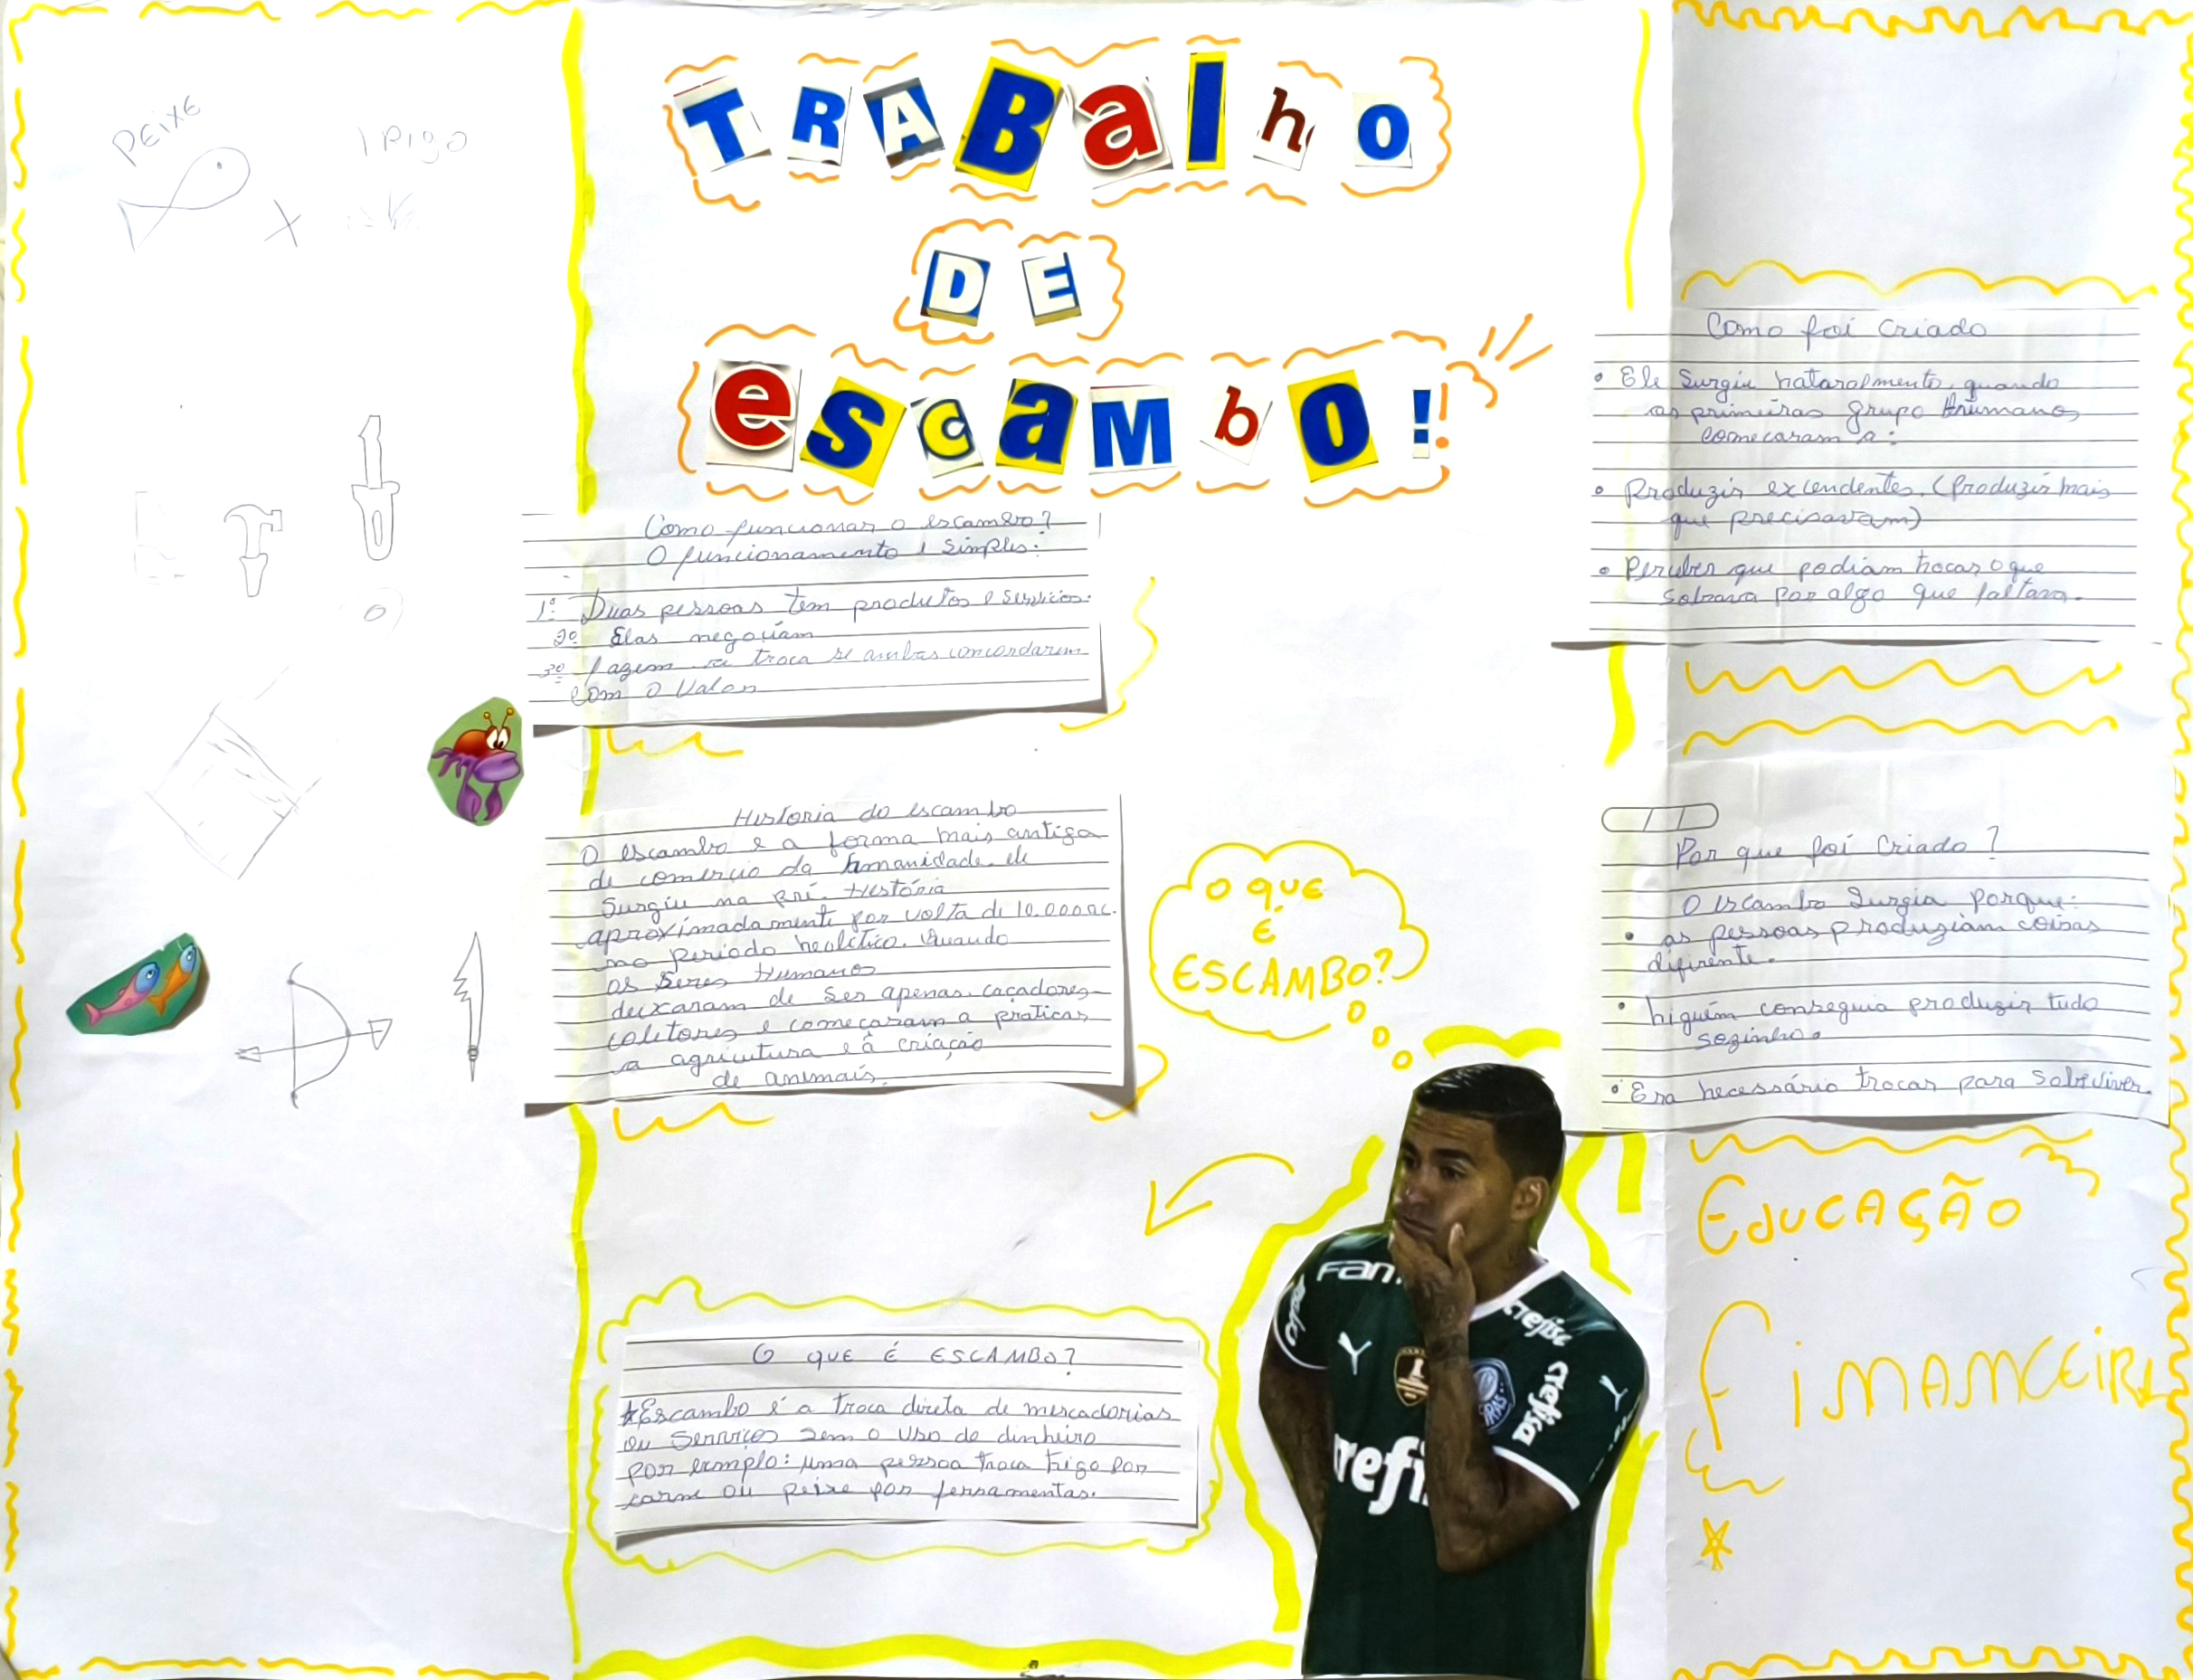 PEIXE
TRIGO
X
TRABalhO
DE
escaMbO!
Como funcionar o escambo?
O funcionamento é simples:
1º Duas pessoas tem produtos e serviços.
2º Elas negociam
3º fazem a troca se ambas concordarem
com o valor
Historia do escambo
O escambo é a forma mais antiga
de comercio da humanidade. ele
Surgiu na pré. História
aproximadamente por volta de 10.000 ac.
no periodo neolitico. Quando
os Seres Humanos
deixaram de ser apenas caçadores
coletores e começaram a praticar
a agricutura e a criação
de animais.
O QUE
É
ESCAMBO?
O QUE É ESCAMBO?
Escambo é a troca direta de mercadorias
ou serviços sem o uso de dinheiro
por exmplo: uma pessoa troca trigo por
carne ou peixe por ferramentas.
Como foi criado
• Ele Surgiu naturalmente, quando
os primeiros grupo humanos
comecaram a:
• Produzir excendentes. (produzir mais
que precisavam)
• Perceber que podiam trocar o que
sobrava por algo que faltava.
Por que foi criado?
O escambo Surgiu porque:
• as pessoas produziam coisas
difirente.
• niguém conseguia produzir tudo
sozinho.
• Era necessário trocar para sobreviver.
EDUCAÇÃO
FiNANCEiRA
Crefisa
Crefisa